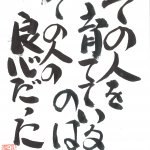 その人を
育てている
のは
その人の
良心だった